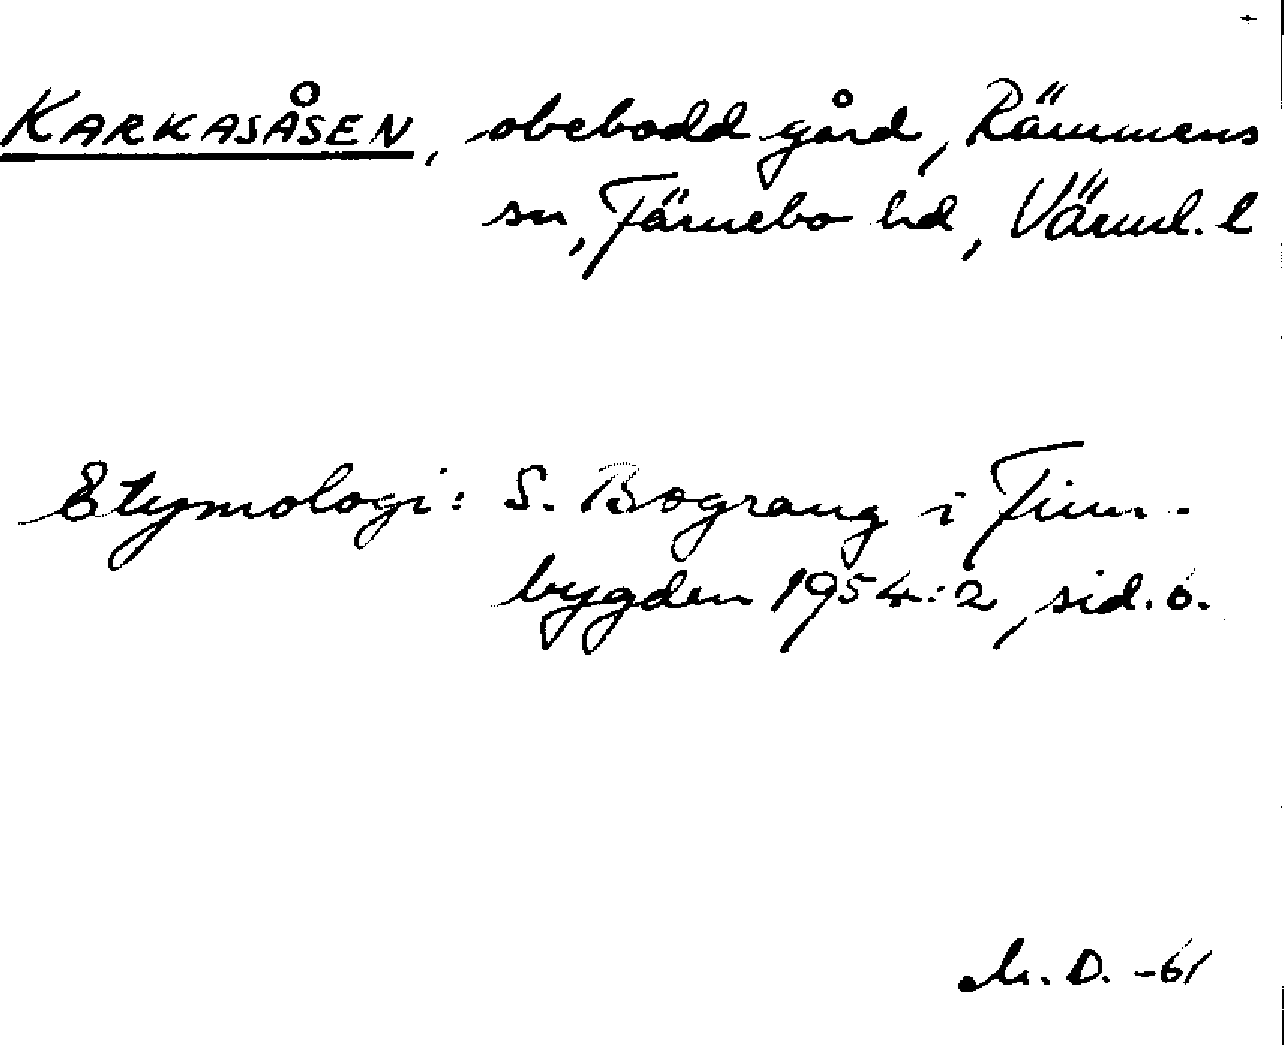 KARKASÅSEN, obebodd gård, Rämmens
sn, Färnebo hd, Värml. l
Etymologi: S. Bograng i Finn-
bygden 1954:2, sid. 6.
M. D. -61